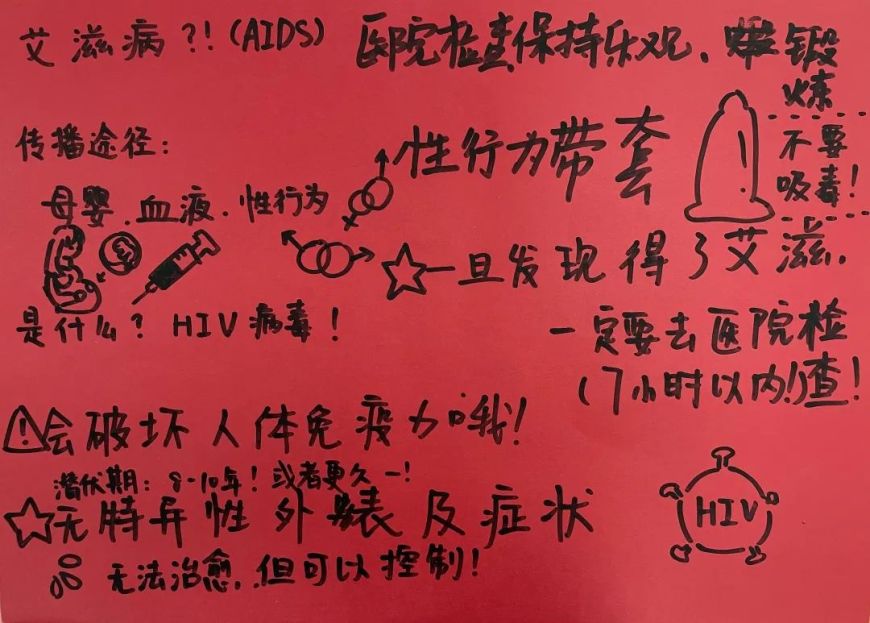 艾滋病?!(AIDS)
医院检查保持乐观.锻
炼
不要
吸毒!
传播途径:
母婴.血液.性行为
性行为带套
一旦发现得了艾滋.
一定要去医院检
(7小时以内!)查!
是什么?HIV病毒!
会破坏人体免疫力哦!
潜伏期:8-10年!或者更久一!
无特异性外表及症状
无法治愈.但可以控制!
HIV